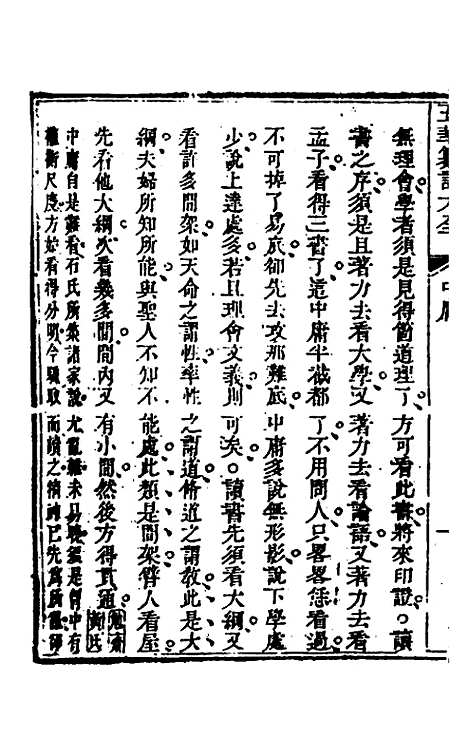 無理會學者須是見得箇道理了方可看此書將來印證。讀
書之序須是且著力去看大學又著力去看論語又著力去看
孟子看得三書了這中庸半截都了不用問人只畧畧恁看過
不可掉了易底卻先去攻那難底中庸多說無形影說下學處
少說上達處多若且理會文義則可矣。讀書先須看大綱又
看許多間架如天命之謂性率性之謂道脩道之謂敎此是大
綱夫婦所知所能與聖人不知不能處此類是間架譬人看屋
先看他大綱次看幾多間間內又有小間然後方得貫通
中庸自是難看石氏所纂諸家說尤亂雜未易曉須是胷中有
權衡尺度方始看得分明今驟取而讀之精神已先爲所亂卻
中庸